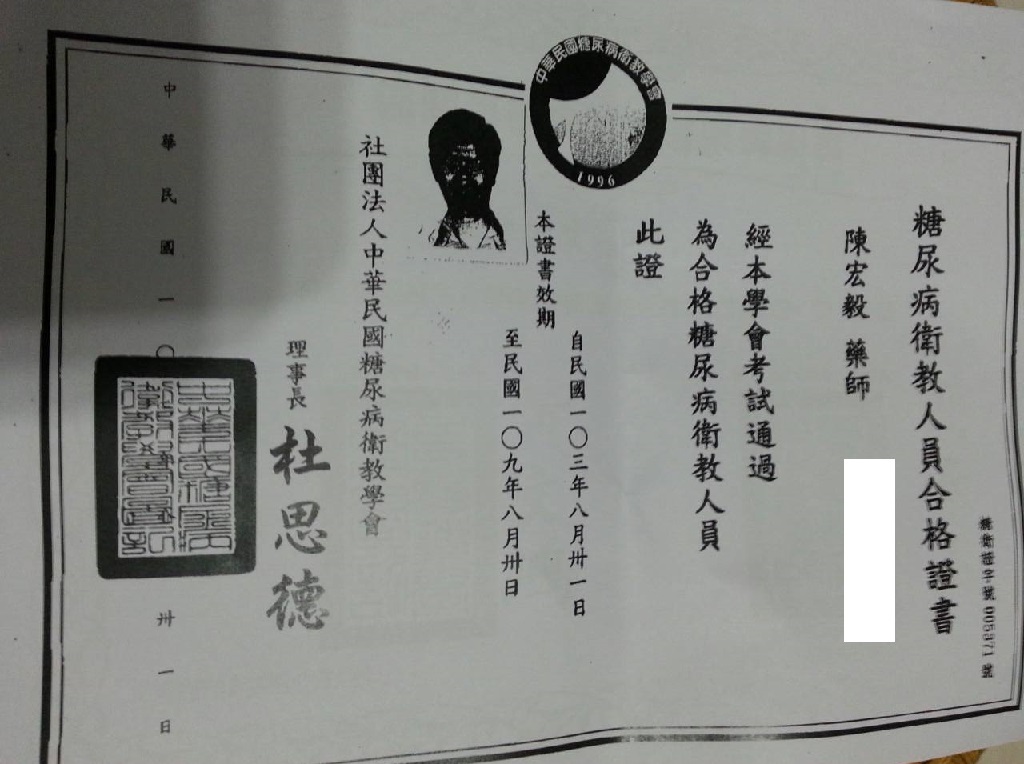 中華民國糖尿病衛教學會
1996
糖尿病衛教人員合格證書
陳宏毅 藥師
經本學會考試通過
為合格糖尿病衛教人員
此證
本證書效期
自民國一〇三年八月卅一日
至民國一〇九年八月卅日
社團法人中華民國糖尿病衛教學會
理事長 杜思德
中華民國一〇
卅一日